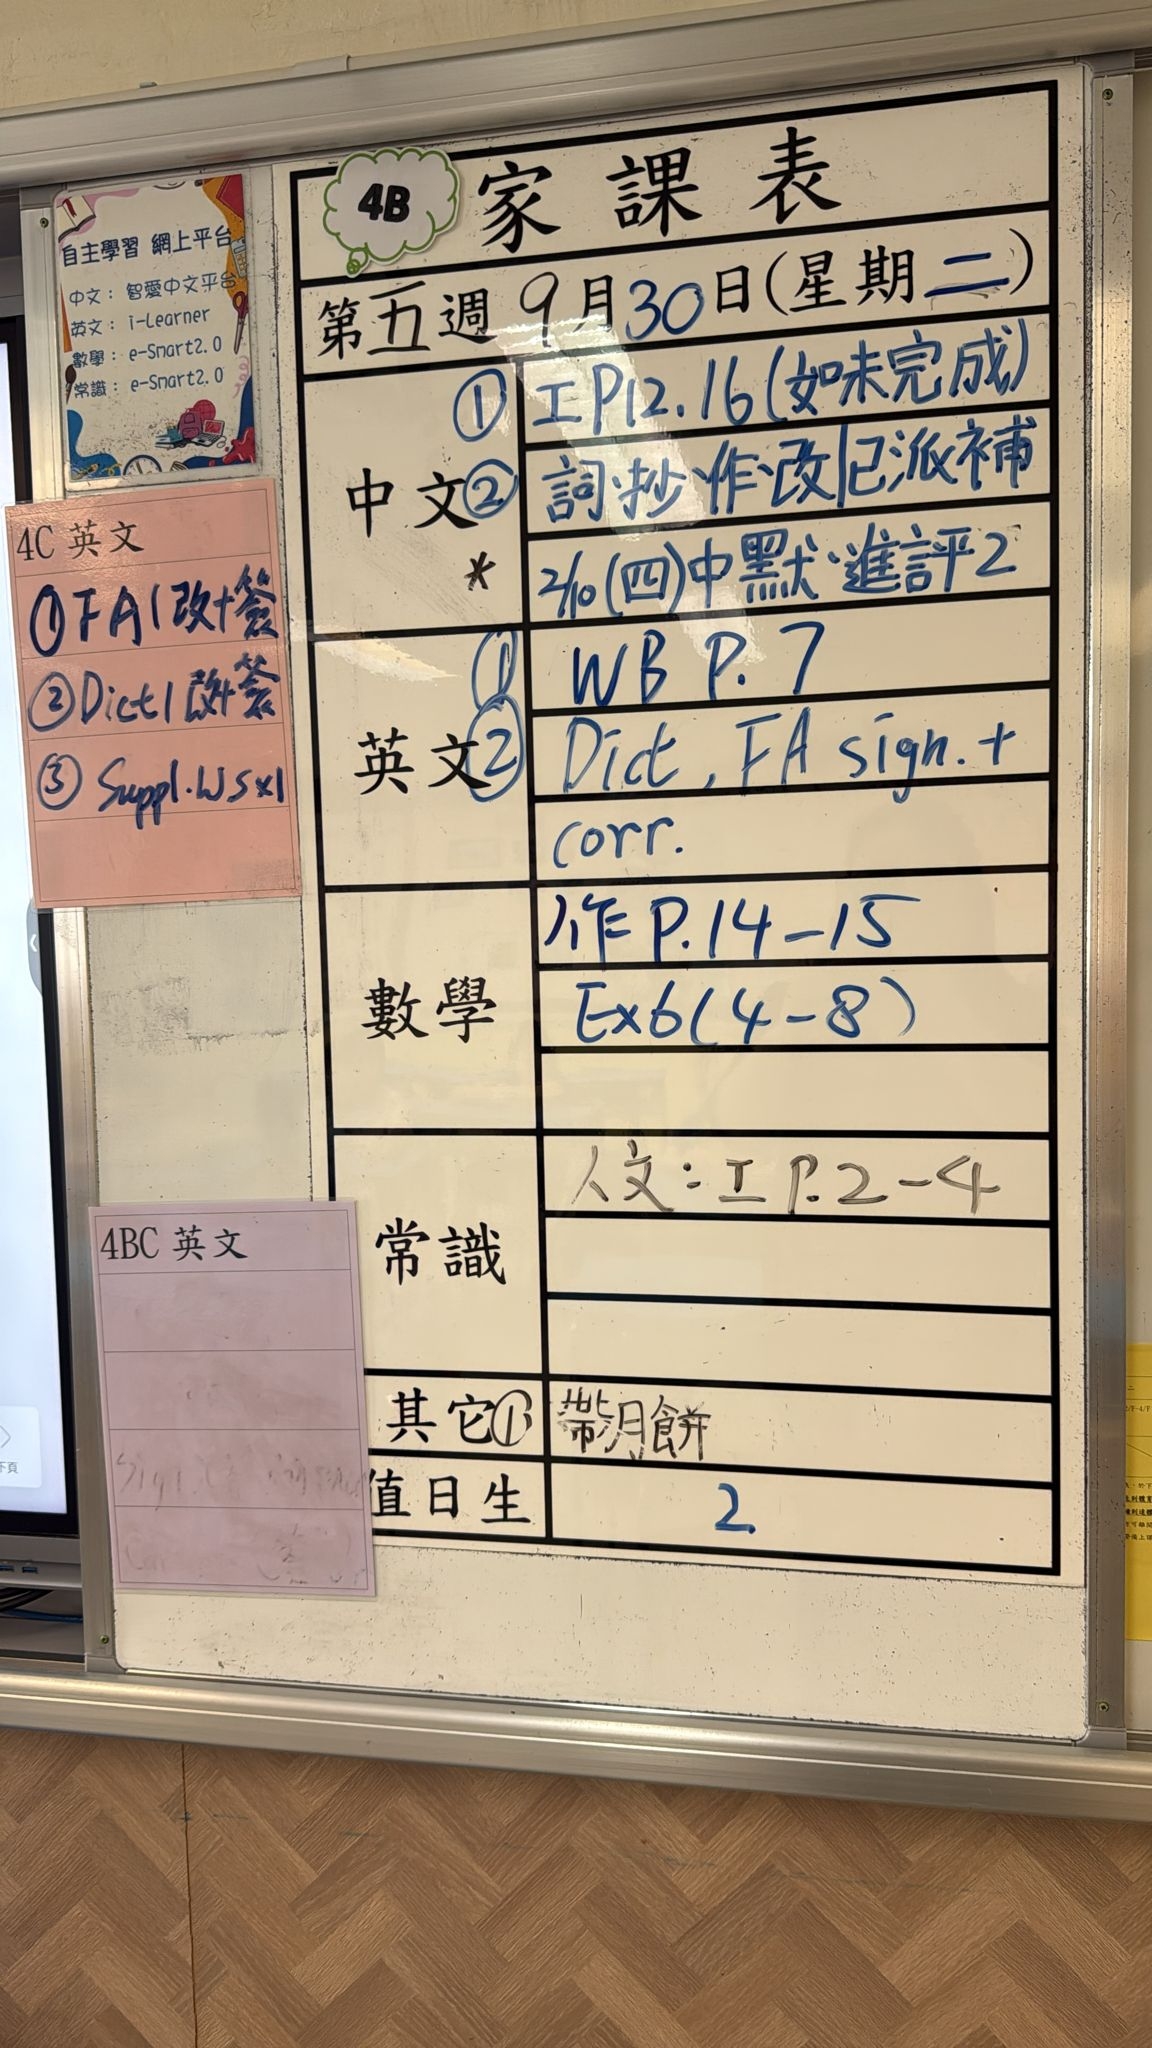 4B
家課表
第五週 9月30日(星期二)
中文
① 工P12.16(如未完成)
② 詞.抄.作.改/已派補
* 2/10(四)中默.進評2
英文
① WB P.7
② Dict, FA sign. +
corr.
數學
作 P.14-15
Ex6(4-8)
常識
人文:工 P.2-4
其它① 帶月餅
值日生 2
自主學習 網上平台
中文: 智愛中文平台
英文: i-Learner
數學: e-Smart2.0
常識: e-Smart2.0
4C 英文
①FA1改+簽
②Dict1改+簽
③Suppl.WSx1
4BC 英文
下頁